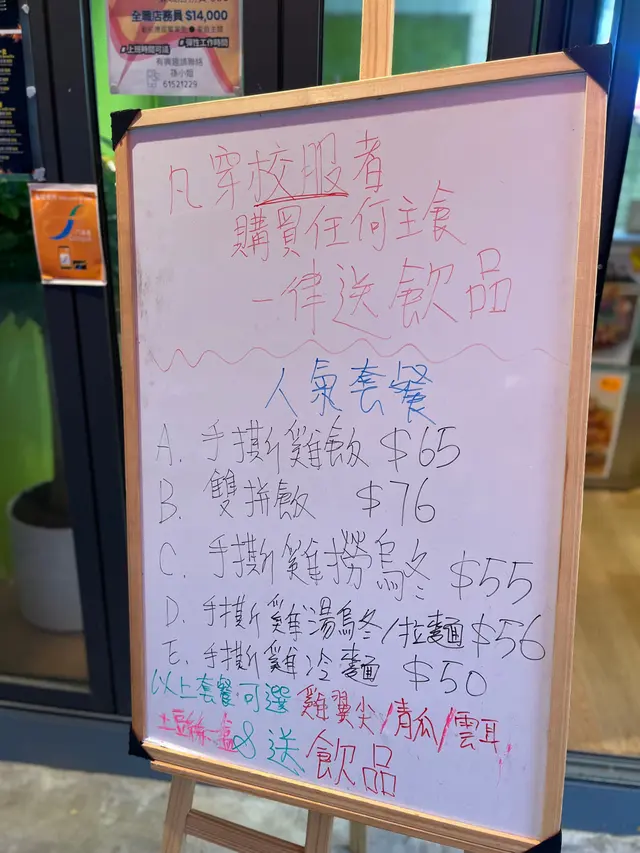 全職店務員 $14,000
#上班時間可議 #彈性工作時間
有興趣請聯絡
孫小姐
61521229
凡穿校服者
購買任何主食
一律送飲品
人氣套餐
A. 手撕雞飯 $65
B. 雙拼飯 $76
C. 手撕雞撈烏冬 $55
D. 手撕雞湯烏冬/拉麵 $56
E. 手撕雞冷麵 $50
以上套餐可選 雞翼尖/青瓜/雲耳
土豆絲 & 送飲品